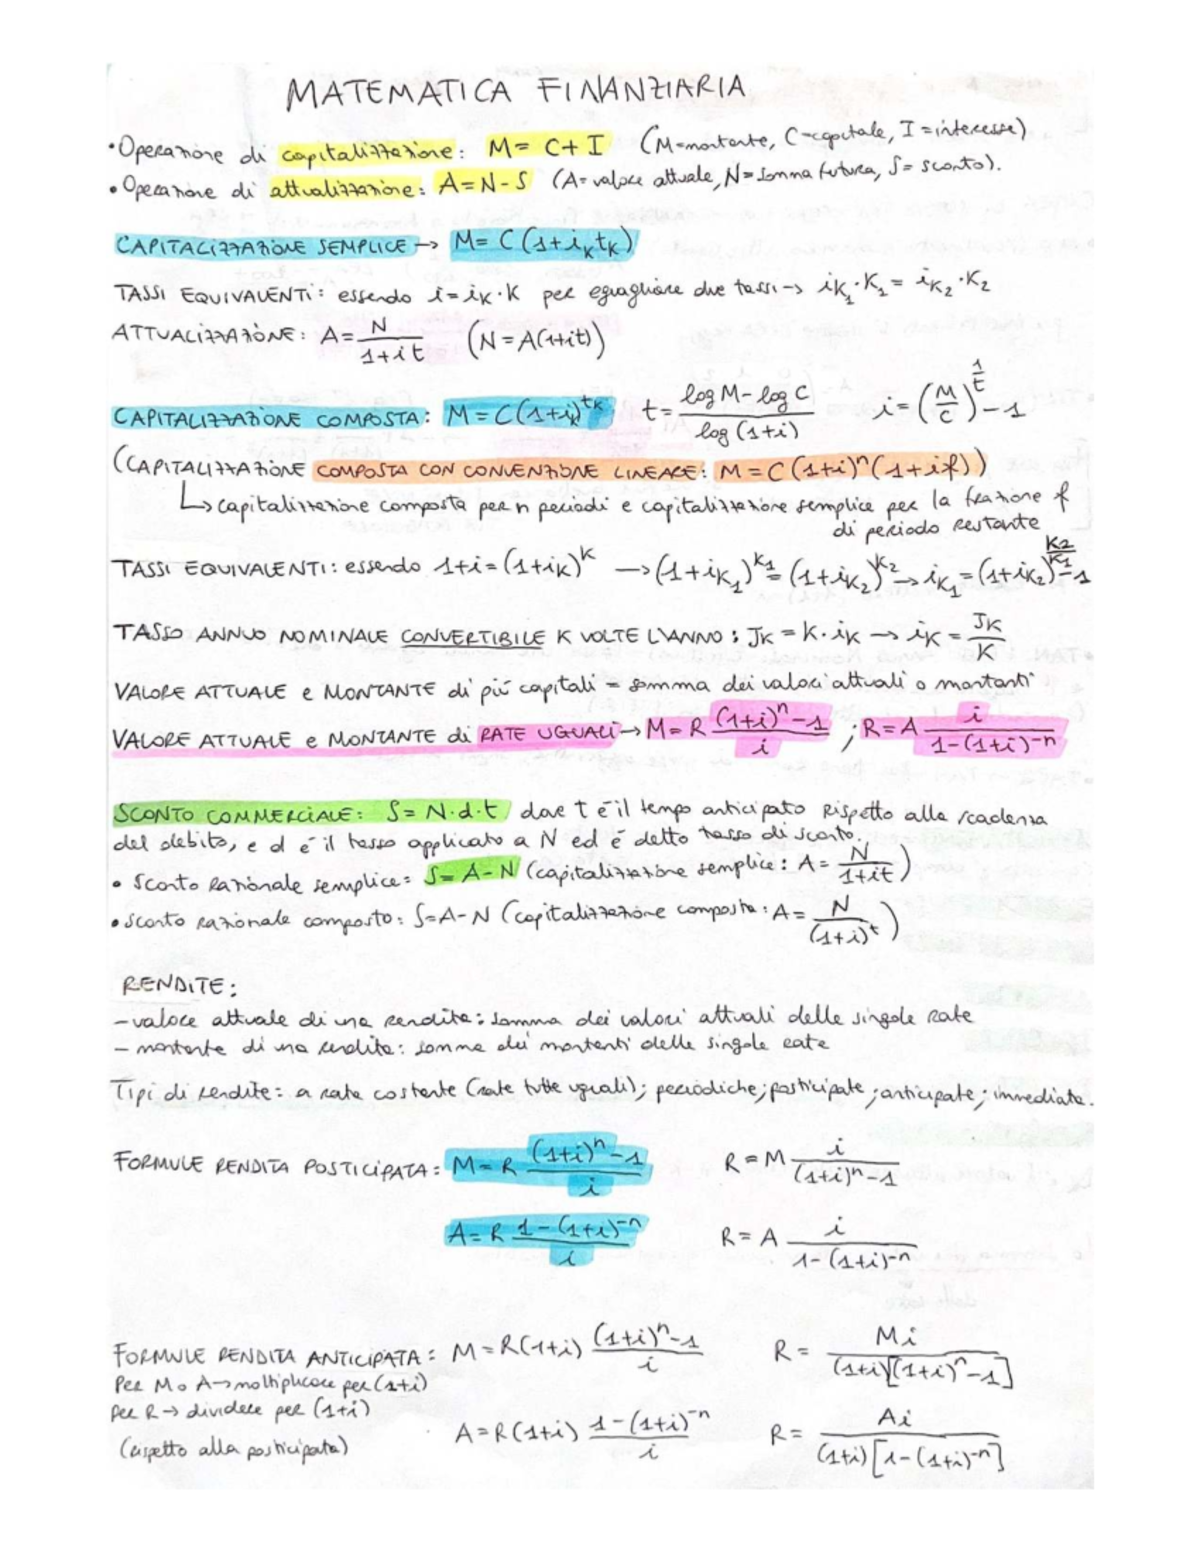 MATEMATICA FINANZIARIA
• Operazione di capitalizzazione: M = C + I (M=montante, C=capitale, I=interesse)
• Operazione di attualizzazione: A = N - S (A= valore attuale, N= somma futura, S= sconto).
CAPITALIZZAZIONE SEMPLICE → M = C (1+i_K t_K)
TASSI EQUIVALENTI: essendo i = i_K · K per eguagliare due tassi → i_K₁ · K₁ = i_K₂ · K₂
ATTUALIZZAZIONE: A = N/(1+it) (N = A(1+it))
CAPITALIZZAZIONE COMPOSTA: M = C(1+i_k)^tk t = (log M - log C)/(log (1+i)) i = (M/C)^(1/t) - 1
(CAPITALIZZAZIONE COMPOSTA CON CONVENZIONE LINEARE: M = C (1+i)^n (1+if))
↳ capitalizzazione composta per n periodi e capitalizzazione semplice per la frazione f
di periodo restante
TASSI EQUIVALENTI: essendo 1+i = (1+i_K)^K → (1+i_K₁)^K₁ = (1+i_K₂)^K₂ → i_K₁ = (1+i_K₂)^(K₂/K₁) - 1
TASSO ANNUO NOMINALE CONVERTIBILE K VOLTE L'ANNO: J_K = K · i_K → i_K = J_K/K
VALORE ATTUALE e MONTANTE di più capitali = somma dei valori attuali o montanti
VALORE ATTUALE e MONTANTE di RATE UGUALI → M = R ((1+i)^n - 1)/i ; R = A i/(1-(1+i)^-n)
SCONTO COMMERCIALE: S = N·d·t dove t è il tempo anticipato rispetto alla scadenza
del debito, e d è il tasso applicato a N ed è detto tasso di sconto.
• Sconto razionale semplice: S = A - N (capitalizzazione semplice: A = N/(1+it))
• Sconto razionale composto: S = A - N (capitalizzazione composta: A = N/(1+i)^t)
RENDITE:
- valore attuale di una rendita: somma dei valori attuali delle singole rate
- montante di una rendita: somma dei montanti delle singole rate
Tipi di rendite: a rata costante (rate tutte uguali); periodiche; posticipate; anticipate; immediate.
FORMULE RENDITA POSTICIPATA: M = R ((1+i)^n - 1)/i R = M i/((1+i)^n - 1)
A = R (1-(1+i)^-n)/i R = A i/(1-(1+i)^-n)
FORMULE RENDITA ANTICIPATA: M = R(1+i) ((1+i)^n - 1)/i R = Mi/((1+i)[(1+i)^n - 1])
Per M o A → moltiplicare per (1+i)
Per R → dividere per (1+i)
(rispetto alla posticipata) A = R(1+i) (1-(1+i)^-n)/i R = Ai/((1+i)[1-(1+i)^-n])